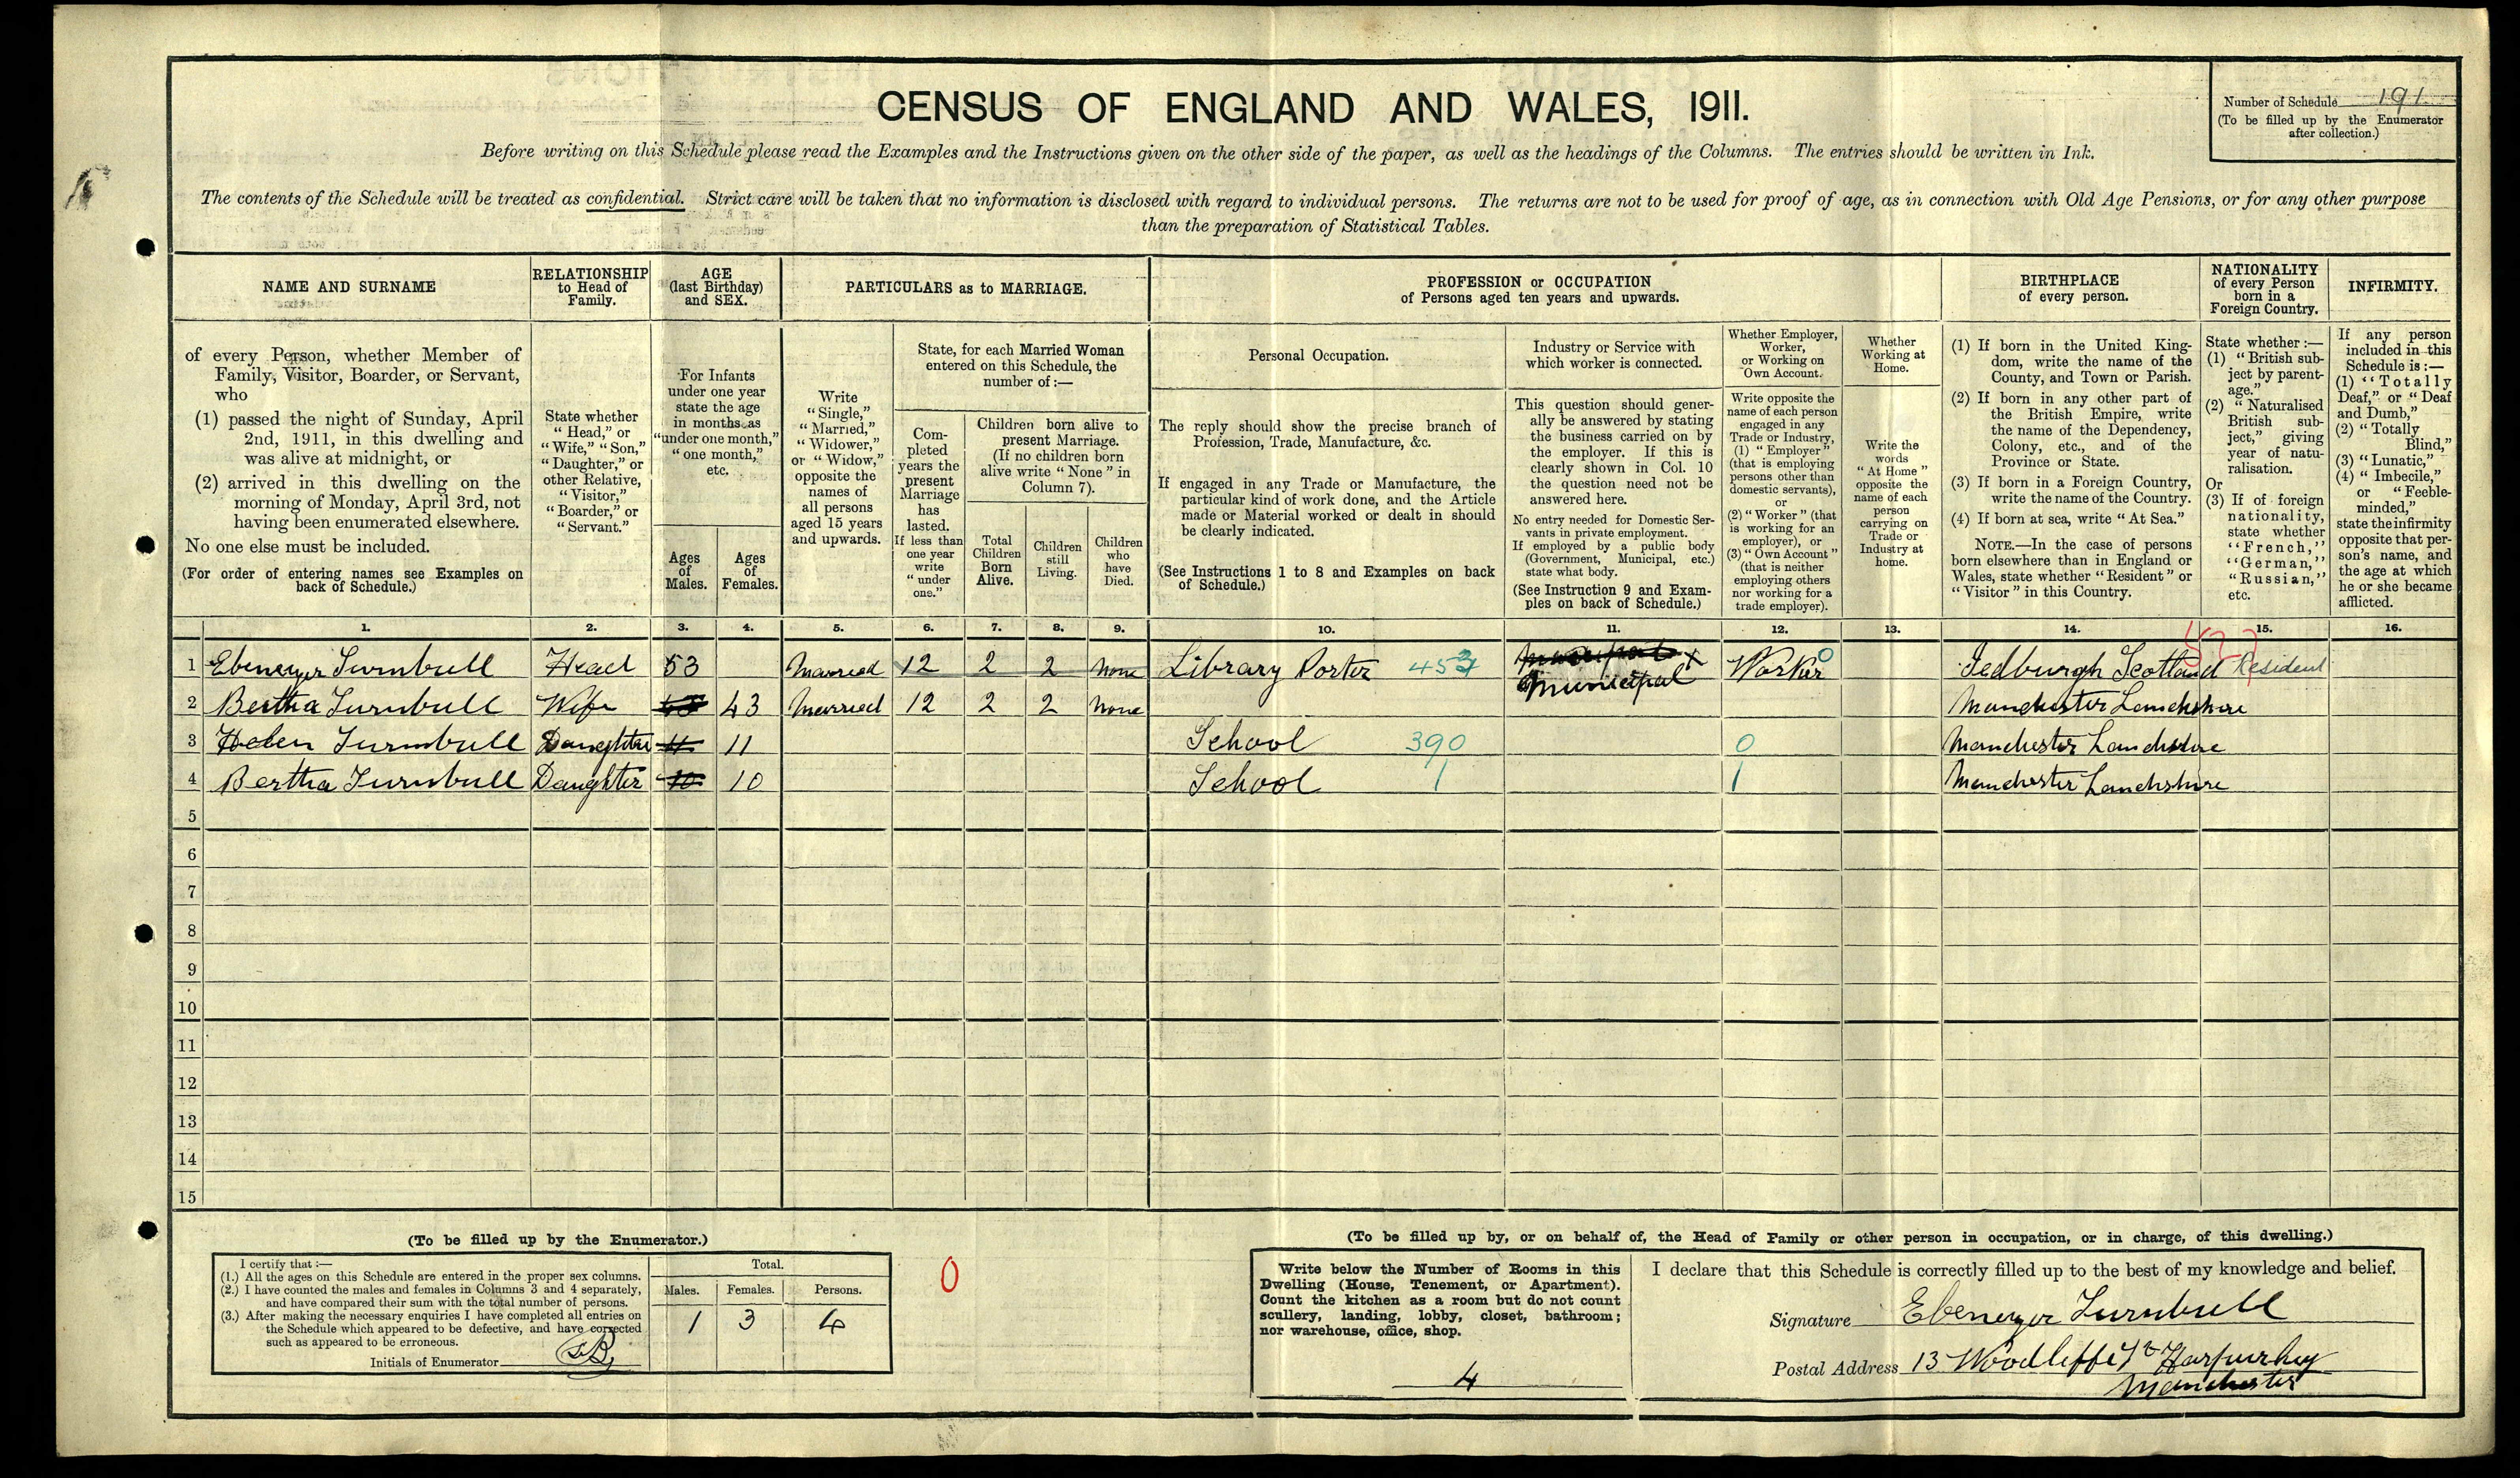 CENSUS OF ENGLAND AND WALES, 1911.
Number of Schedule 191
(To be filled up by the Enumerator
after collection.)
Before writing on this Schedule please read the Examples and the Instructions given on the other side of the paper, as well as the headings of the Columns. The entries should be written in Ink.
The contents of the Schedule will be treated as confidential. Strict care will be taken that no information is disclosed with regard to individual persons. The returns are not to be used for proof of age, as in connection with Old Age Pensions, or for any other purpose
than the preparation of Statistical Tables.
NAME AND SURNAME
of every Person, whether Member of
Family, Visitor, Boarder, or Servant,
who
(1) passed the night of Sunday, April
2nd, 1911, in this dwelling and
was alive at midnight, or
(2) arrived in this dwelling on the
morning of Monday, April 3rd, not
having been enumerated elsewhere.
No one else must be included.
(For order of entering names see Examples on
back of Schedule.)
RELATIONSHIP
to Head of
Family.
State whether
"Head," or
"Wife," "Son,"
"Daughter," or
other Relative,
"Visitor,"
"Boarder," or
"Servant."
AGE
(last Birthday)
and SEX.
For Infants
under one year
state the age
in months as
"under one month,"
"one month,"
etc.
Ages
of
Males.
Ages
of
Females.
PARTICULARS as to MARRIAGE.
Write
"Single,"
"Married,"
"Widower,"
or "Widow,"
opposite the
names of
all persons
aged 15 years
and upwards.
State, for each Married Woman
entered on this Schedule, the
number of:—
Com-
pleted
years the
present
Marriage
has
lasted.
If less than
one year
write
"under
one."
Children born alive to
present Marriage.
(If no children born
alive write "None" in
Column 7).
Total
Children
Born
Alive.
Children
still
Living.
Children
who
have
Died.
PROFESSION or OCCUPATION
of Persons aged ten years and upwards.
Personal Occupation.
The reply should show the precise branch of
Profession, Trade, Manufacture, &c.
If engaged in any Trade or Manufacture, the
particular kind of work done, and the Article
made or Material worked or dealt in should
be clearly indicated.
(See Instructions 1 to 8 and Examples on back
of Schedule.)
Industry or Service with
which worker is connected.
This question should gener-
ally be answered by stating
the business carried on by
the employer. If this is
clearly shown in Col. 10
the question need not be
answered here.
No entry needed for Domestic Ser-
vants in private employment.
If employed by a public body
(Government, Municipal, etc.)
state what body.
(See Instruction 9 and Exam-
ples on back of Schedule.)
Whether Employer,
Worker,
or Working on
Own Account.
Write opposite the
name of each person
engaged in any
Trade or Industry,
(1) "Employer"
(that is employing
persons other than
domestic servants),
or
(2) "Worker" (that
is working for an
employer), or
(3) "Own Account"
(that is neither
employing others
nor working for a
trade employer).
Whether
Working at
Home.
Write the
words
"At Home"
opposite the
name of each
person
carrying on
Trade or
Industry at
home.
BIRTHPLACE
of every person.
(1) If born in the United King-
dom, write the name of the
County, and Town or Parish.
(2) If born in any other part of
the British Empire, write
the name of the Dependency,
Colony, etc., and of the
Province or State.
(3) If born in a Foreign Country,
write the name of the Country.
(4) If born at sea, write "At Sea."
NOTE.—In the case of persons
born elsewhere than in England or
Wales, state whether "Resident" or
"Visitor" in this Country.
NATIONALITY
of every Person
born in a
Foreign Country.
State whether:—
(1) "British sub-
ject by parent-
age."
(2) "Naturalised
British sub-
ject," giving
year of natu-
ralisation.
Or
(3) If of foreign
nationality,
state whether
"French,"
"German,"
"Russian,"
etc.
INFIRMITY.
If any person
included in this
Schedule is:—
(1) "Totally
Deaf," or "Deaf
and Dumb,"
(2) "Totally
Blind,"
(3) "Lunatic,"
(4) "Imbecile,"
or "Feeble-
minded,"
state the infirmity
opposite that per-
son's name, and
the age at which
he or she became
afflicted.
1. 2. 3. 4. 5. 6. 7. 8. 9. 10. 11. 12. 13. 14. 15. 16.
1 Ebenezer Turnbull Head 53 Married 12 2 2 None Library Porter Municipal Worker 0 Jedburgh Scotland Resident
2 Bertha Turnbull Wife 43 Married 12 2 2 None Manchester Lancheshire
3 Helen Turnbull Daughter 11 11 School 390 0 Manchester Lancheshire
4 Bertha Turnbull Daughter 10 10 School 1 1 Manchester Lancheshire
5
6
7
8
9
10
11
12
13
14
15
(To be filled up by the Enumerator.)
I certify that:—
(1.) All the ages on this Schedule are entered in the proper sex columns.
(2.) I have counted the males and females in Columns 3 and 4 separately,
and have compared their sum with the total number of persons.
(3.) After making the necessary enquiries I have completed all entries on
the Schedule which appeared to be defective, and have corrected
such as appeared to be erroneous.
Initials of Enumerator
Total.
Males. Females. Persons.
1 3 4
0
(To be filled up by, or on behalf of, the Head of Family or other person in occupation, or in charge, of this dwelling.)
Write below the Number of Rooms in this
Dwelling (House, Tenement, or Apartment).
Count the kitchen as a room but do not count
scullery, landing, lobby, closet, bathroom;
nor warehouse, office, shop.
4
I declare that this Schedule is correctly filled up to the best of my knowledge and belief.
Signature Ebenezer Turnbull
Postal Address 13 Woodliffe St Harpurhey
Manchester